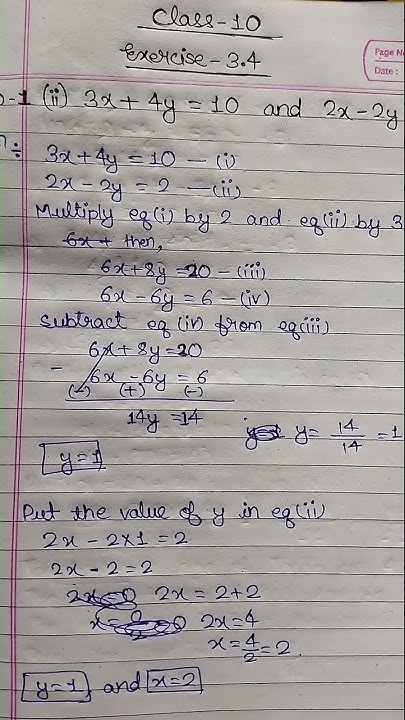 Class-10
Exercise-3.4
Page No
Date :
-1 (ii) 3x+4y=10 and 2x-2y
÷ 3x+4y=10 -(i)
2x-2y=2 -(ii)
Multiply eq(i) by 2 and eq(ii) by 3
then,
6x+8y=20 -(iii)
6x-6y=6 -(iv)
Subtract eq(iv) from eq(iii)
6x+8y=20
- 6x-6y=6
(-) (+) (-)
14y=14
y=14/14=1
y=1
Put the value of y in eq(ii)
2x-2×1=2
2x-2=2
2x=2+2
2x=4
x=4/2=2
y=1 and x=2